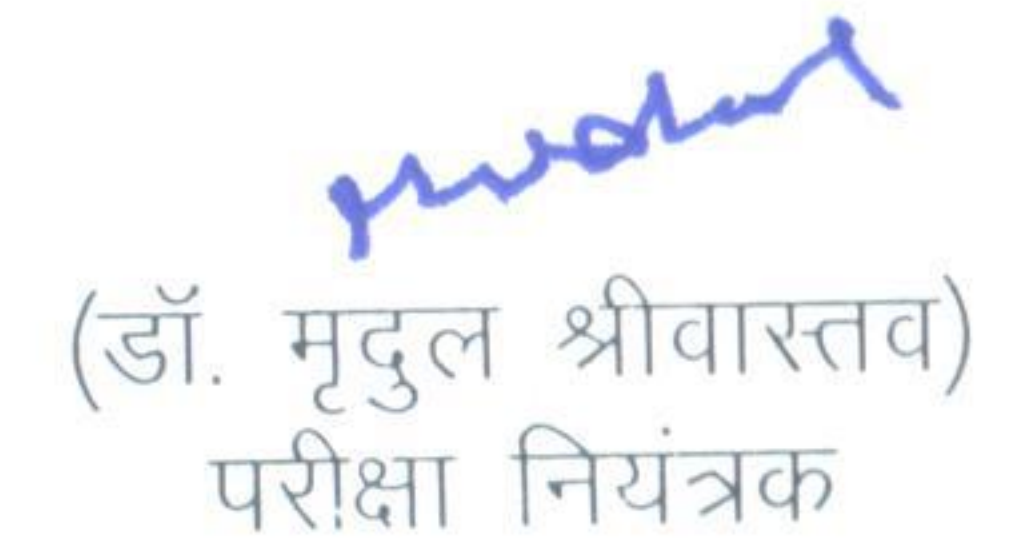 (डॉ. मृदुल श्रीवास्तव)
परीक्षा नियंत्रक